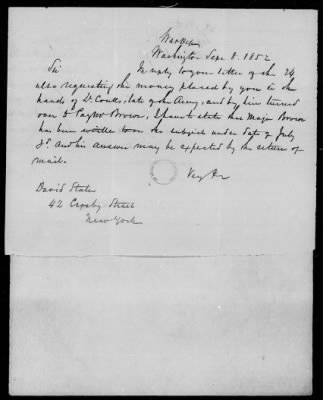 War Dept
Washington Sepr 8. 1852
Sir
In reply to your letter of the 24
ulto requesting the money placed by you in the
hands of Dr. Coutts, late of the Army, and by him turned
over to PayMr Brown, I have to state that Major Brown
has been written to on the subject under date of July
and his answer may be expected by the return of
mail.
Very &c
David Slater
42 Crosby Street
New York